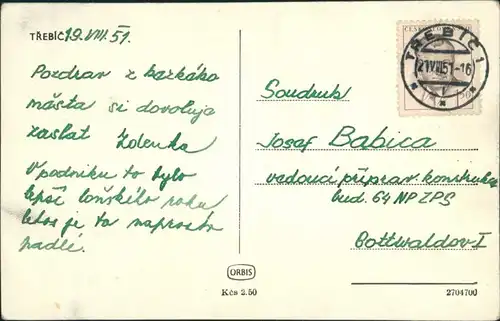 TŘEBÍČ 19.VIII.51.
Pozdrav z hezkého
města si dovoluje
zaslat Zdenka
V podniku to bylo
lepší loňského roku
letos je to naprosto
padlé.
ČESKOSLOVENSKO
TŘEBÍČ 1
21.VIII.51-16
Soudruh
Josef Babica
vedoucí příprav. konstrukce
bud. 64 NP ZPS
Gottwaldov-I
ORBIS
Kčs 2.50
2704700